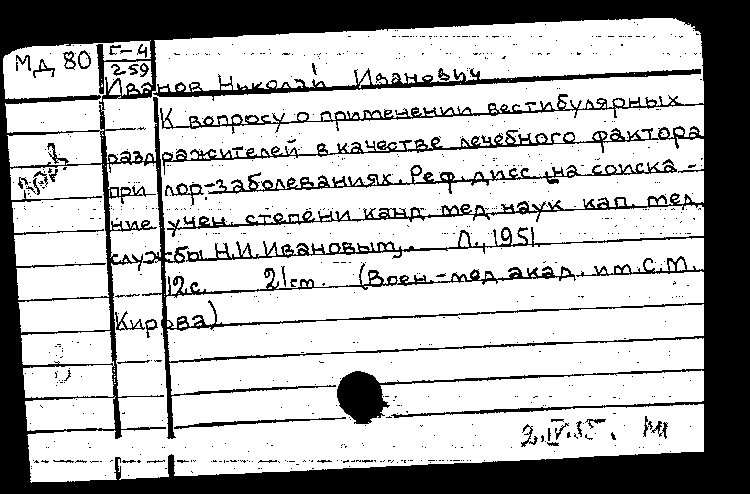 Мд 80
Г-4
259
Иванов, Николай Иванович
К вопросу о применении вестибулярных
раздражителей в качестве лечебного фактора
при лор-заболеваниях. Реф. дисс. на соиска-
ние учен. степени канд. мед. наук кап. мед.
службы Н.И. Ивановым. Л., 1951.
12 с. 21 cm. (Воен.-мед. акад. им. С.М.
Кирова)
2.IV.55.